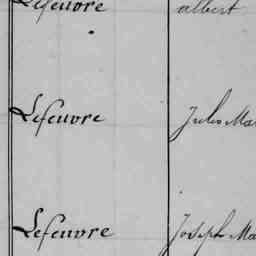 Lefeuvre albert
Lefeuvre Jules Ma
Lefeuvre Joseph Ma